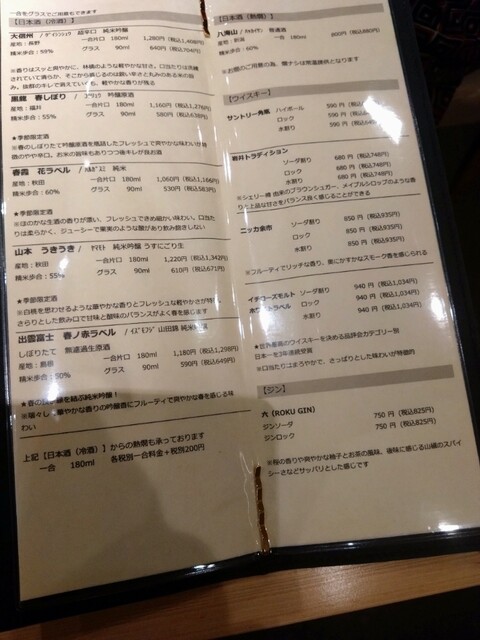 一合をグラスでご用意もできます
【日本酒（冷酒）】
大信州 / ダイシンシュウ 超辛口 純米吟醸
産地：長野 一合片口 180ml 1,280円（税込1,408円）
精米歩合：59% グラス 90ml 640円（税込704円）
黒龍 春しぼり / コクリュウ 吟醸原酒
産地：福井 一合片口 180ml 1,160円（税込1,276円）
精米歩合：55% グラス 90ml 580円（税込638円）
★季節限定酒
春霞 花ラベル / ハルガスミ 純米
産地：秋田 一合片口 180ml 1,060円（税込1,166円）
精米歩合：60% グラス 90ml 530円（税込583円）
★季節限定酒
※ほのかな生酒の香りが漂い、フレッシュできめ細かい味わい。口当た
りは柔らかく、ジューシーで果実のような酸があり飲み飽きしない
山本 うきうき / ヤマモト 純米吟醸 うすにごり生
産地：秋田 一合片口 180ml 1,220円（税込1,342円）
精米歩合：55% グラス 90ml 610円（税込671円）
★季節限定酒
※白桃を思わせるような華やかな香りとフレッシュな軽やかさが特徴。
さらりとした飲み口で甘味と酸味のバランスがよく春を感じます
出雲富士 春ノ赤ラベル / イズモフジ 山田錦 純米吟醸
しぼりたて 無濾過生原酒
産地：島根 一合片口 180ml 1,180円（税込1,298円）
精米歩合：50% グラス 90ml 590円（税込649円）
※瑞々しく華やかな香りの吟醸香にフルーティで爽やかな春を感じる味
わい
上記【日本酒（冷酒）】からの熱燗も承っております
一合 180ml 各税別一合料金＋税別200円
【日本酒（熱燗）】
八海山 / ハッカイサン 普通酒
産地：新潟 一合 180ml 800円（税込880円）
精米歩合：60%
【ウイスキー】
サントリー角瓶 ハイボール 590円
ロック 590円
水割り 590円
岩井トラディション
ソーダ割り 680円（税込748円）
ロック 680円（税込748円）
水割り 680円（税込748円）
※シェリー樽 由来のブラウンシュガー、メイプルシロップのような香
りと上品な甘さをバランス良く感じることができる
ニッカ余市 ソーダ割り 850円（税込935円）
ロック 850円（税込935円）
水割り 850円（税込935円）
※フルーティでリッチな香り、奥にかすかなスモーク香を感じられる
イチローズモルト ソーダ割り 940円（税込1,034円）
ホワイトラベル ロック 940円（税込1,034円）
水割り 940円（税込1,034円）
★世界最高のウイスキーを決める品評会カテゴリー別
日本一を2年連続受賞
※口当たりはまろやかで、さっぱりとした味わいが特徴的
【ジン】
六（ROKU GIN）
ジンソーダ 750円（税込825円）
ジンロック 750円（税込825円）
※桜の香りや爽やかな柚子とお茶の風味、後味に感じる山椒のスパイ
シーさなどサッパリとした感じです